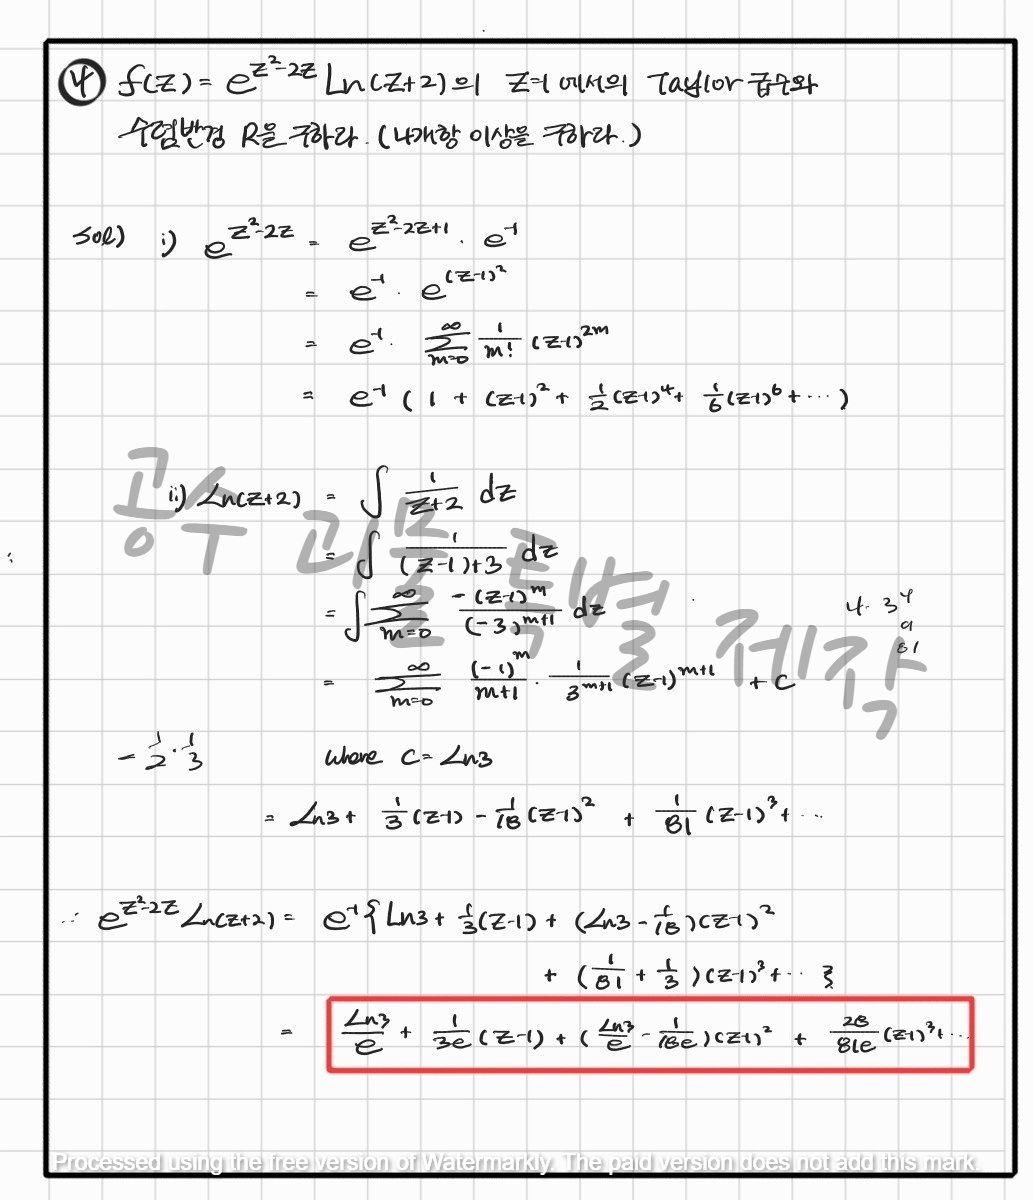 ④ f(z) = e^{z²-2z} Ln(z+2)의 z=1 에서의 Taylor 급수와
수렴반경 R을 구하라. (4개항 이상을 구하라.)
sol) i) e^{z²-2z} = e^{z²-2z+1} · e^{-1}
= e^{-1} · e^{(z-1)²}
= e^{-1} · ∑_{m=0}^{∞} 1/m! (z-1)^{2m}
= e^{-1} ( 1 + (z-1)² + 1/2 (z-1)⁴ + 1/6 (z-1)⁶ + ··· )
ii) Ln(z+2) = ∫ 1/(z+2) dz
= ∫ 1/((z-1)+3) dz
= ∫ ∑_{m=0}^{∞} -(z-1)^m/(-3)^{m+1} dz
4· 3⁴
9
81
= ∑_{m=0}^{∞} (-1)^m/(m+1) · 1/3^{m+1} (z-1)^{m+1} + C
- 1/2 · 1/3
where C = Ln3
= Ln3 + 1/3 (z-1) - 1/18 (z-1)² + 1/81 (z-1)³ + ···
∴ e^{z²-2z} Ln(z+2) = e^{-1} { Ln3 + 1/3 (z-1) + (Ln3 - 1/18)(z-1)²
+ (1/81 + 1/3)(z-1)³ + ··· }
= Ln3/e + 1/3e (z-1) + (Ln3/e - 1/18e)(z-1)² + 28/81e (z-1)³ + ···
공수 괴물 특별 제작
Processed using the free version of Watermarkly. The paid version does not add this mark.